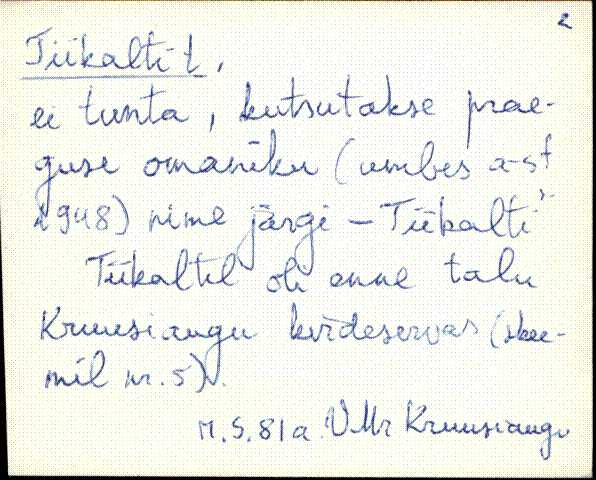 2
Tiikaltit,
ei tunta, kutsutakse prae-
guse omaniku (umbes a-st
1948) nime järgi – Tiikalti
Tiikaltil oli enne talu
Kruusiaugu kvrdeservas (skee-
mil nr. 5).
M.S. 81 a. VMr Kruusiaugu